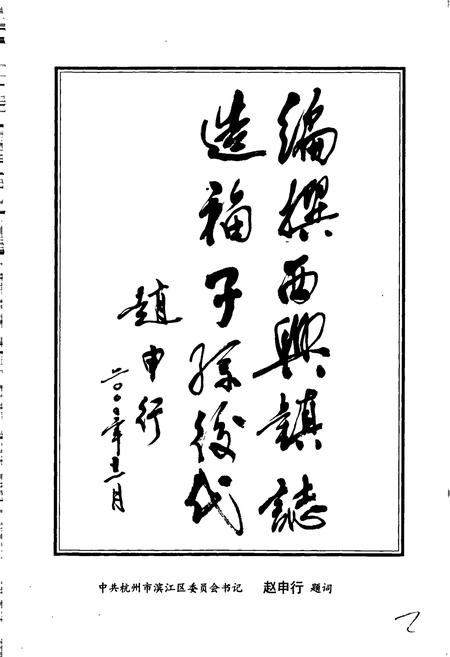 编撰西興鎮誌
造福子孫後代
趙申行
二〇〇〇年十一月
中共杭州市滨江区委员会书记 赵申行 题词